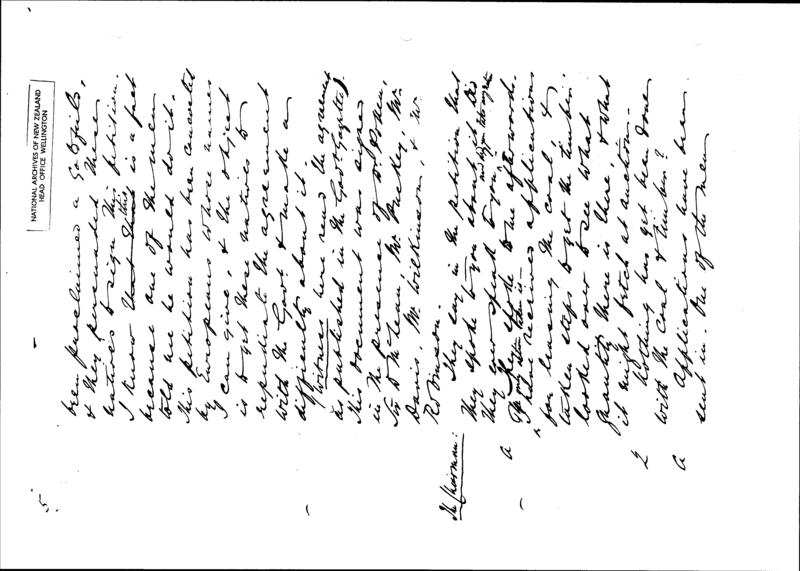 NATIONAL ARCHIVES OF NEW ZEALAND
HEAD OFFICE WELLINGTON
5.
been proclaimed a Goldfield,
& they persuaded these
natives to sign this petition.
I know that this is a fact
because one of the men
told me he would do it.
This petition has been concocted
by Europeans whose names
I can give, & the object
is to get these natives to
repudiate the agreement
with the Govt. & make a
difficulty about it.
Witness here read the agreement
as published in the Govt. Gazette.
This document was signed
in the presence of Dr. Pollen,
Sir D. McLean, Mr Puckey, Mr.
Davis, Mr. Wilkinson, & Mr.
Robinson.
The Chairman: They say in the petition that
they spoke to you about it. Did
they ever speak to you
A They spoke to me afterwards.
I have received applications
for leasing the coal, &
taken steps to get the timber.
looked over to see what
quantity there is there, & what
it might fetch at auction.
Q Nothing has yet been done
with the Coal & timber?
A Applications have been
sent in. One of the men